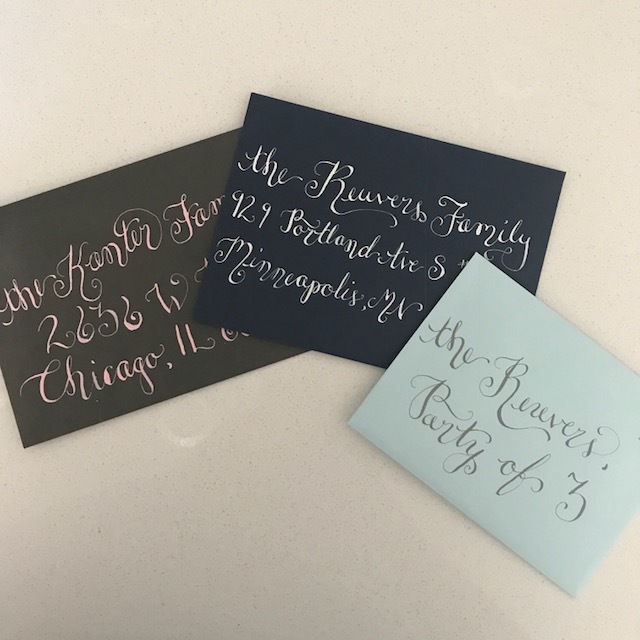 the Kanter Fam
2636 W
Chicago, IL
the Reuvers Family
929 Portland Ave S
Minneapolis, MN
the Reuvers'
Party of 3